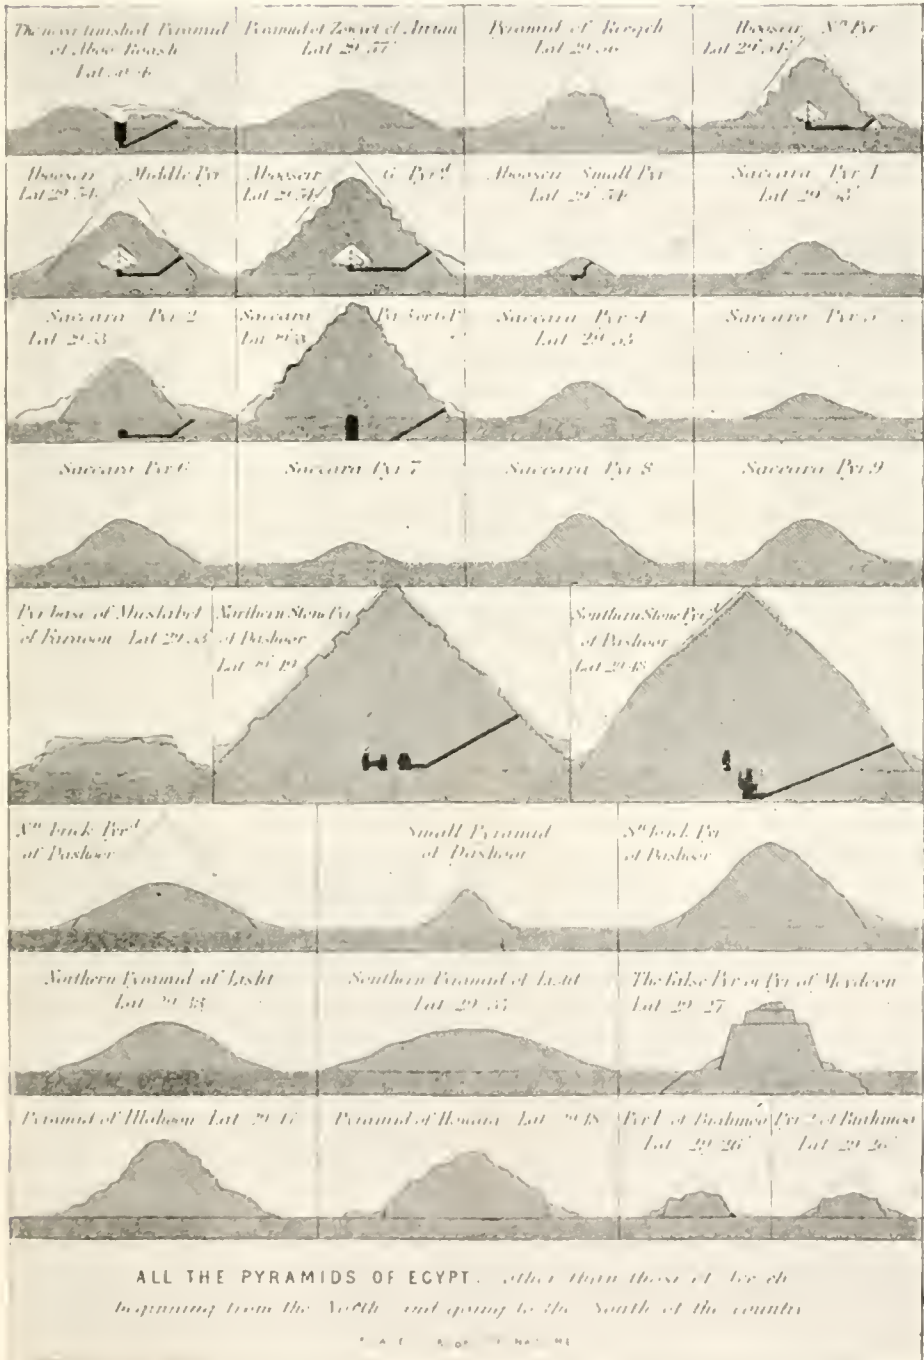 Pyramid
of Aboo Roash
Lat
Pyramid of Zowyet el Arrian
Lat 29° 57'
Pyramid of Reegeh
Lat 29° 56'
Abooseir Nn Pyr
Lat 29° 54'
Abooseir Middle Pyr
Lat 29° 54'
Abooseir G. Pyrd
Lat 29° 54'
Abooseir Small Pyr
Lat 29° 54'
Saccara Pyr 1
Lat 29° 53'
Saccara Pyr 2
Lat 29° 53
Saccara
Lat
Saccara Pyr 4
Lat 29° 53
Saccara Pyr 5
Saccara Pyr 6
Saccara Pyr 7
Saccara Pyr 8
Saccara Pyr 9
Pyr base of Mustabet
el Faraoon Lat 29° 53'
Northern Stone Pyr
of Dashoor
Lat 29° 49
Southern Stone Pyrd
of Dashoor
Lat 29° 48
Nn brick Pyrd
of Dashoor
Small Pyramid
of Dashoor
Sn brick Pyr
of Dashoor
Northern Pyramid of Lisht
Lat
Southern Pyramid of Lisht
Lat 29°
The False Pyr or Pyr of Meydoon
Lat 29° 27'
Pyramid of Illahoon Lat 29° 17'
Pyramid of Howara Lat 29° 18
Pyr 1 of Biahmoo
Lat 29° 26'
Pyr 2 of Biahmoo
Lat 29° 26'
ALL THE PYRAMIDS OF EGYPT. other than those of Jeezeh
beginning from the North and going to the South of the country